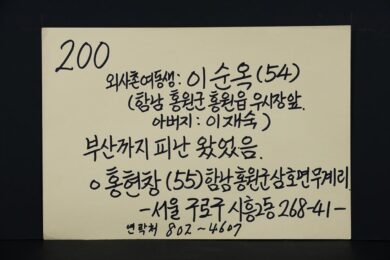 200
외사촌여동생: 이순옥(54)
(함남 홍원군 홍원읍 우시장앞.
아버지: 이재숙)
부산까지 피난 왔었음.
○홍현창(55)함남홍원군삼호면무계리
-서울 구로구 시흥2동 268-41-
연락처 802~4607